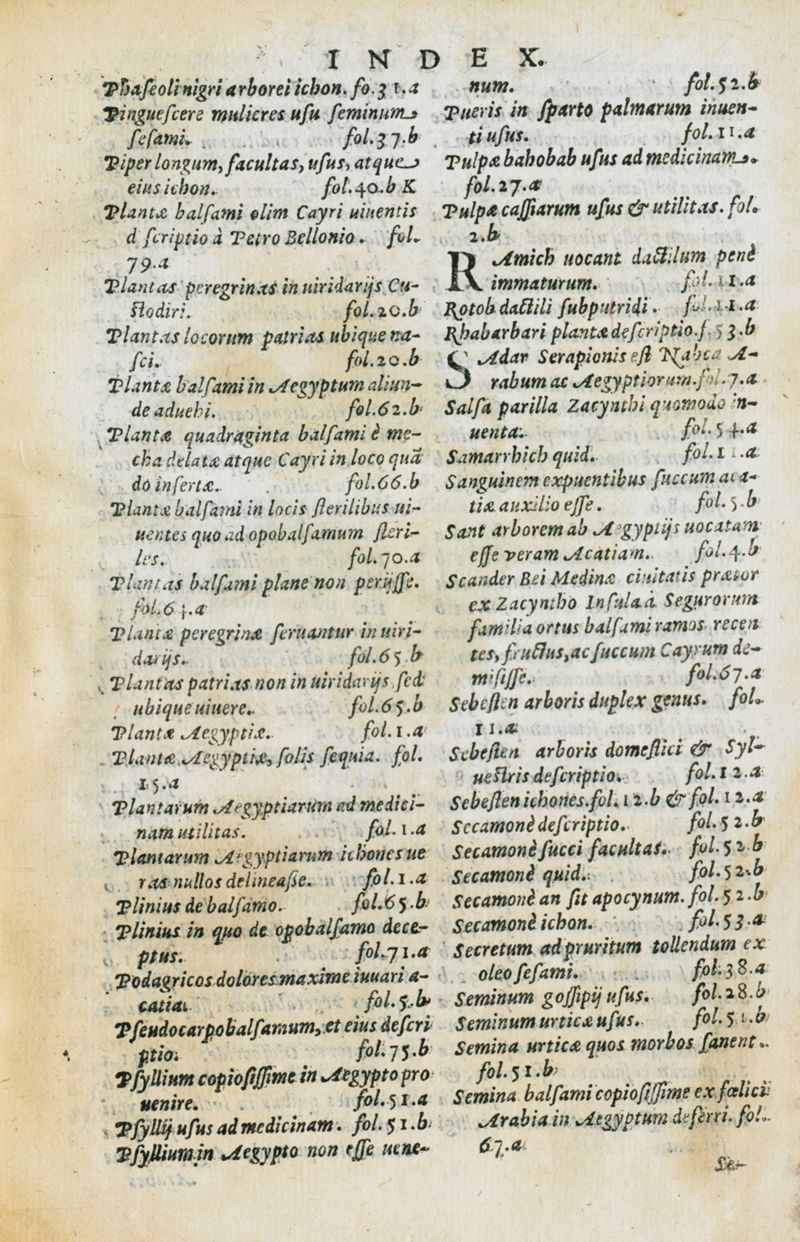 INDEX.
Phaſeoli nigri arborei ichon. fo.31.a
Pingueſcere mulieres uſu ſeminum
ſeſami. fol.37.b
Piper longum, facultas, uſus, atque
eius ichon. fol.40.b K
Plantæ balſami olim Cayri uiuentis
d ſcriptio à Petro Bellonio. fol.
79.a
Plantas peregrinas in uiridarijs Cu-
ſtodiri. fol.20.b
Plantas locorum patrias ubique na-
ſci. fol.20.b
Plantæ balſami in Aegyptum aliun-
de aduehi. fol.62.b
Plantæ quadraginta balſami è me-
cha delatæ atque Cayri in loco quā
do inſertæ. fol.66.b
Plantæ balſami in locis ſterilibus ui-
uentes quo ad opobalſamum ſteri-
les. fol.70.a
Plantas balſami plane non perijſſe.
fol.64.a
Plantæ peregrinæ ſeruantur in uiri-
darijs. fol.65.b
Plantas patrias non in uiridarijs ſed
ubique uiuere. fol.65.b
Plantæ Aegyptiæ. fol.1.a
Plantæ Aegyptiæ, ſolis ſequia. fol.
15.a
Plantarum Aegyptiarum ad medici-
nam utilitas. fol.1.a
Plantarum Aegyptiarum ichones ue
ras nullos delineaſſe. fol.1.a
Plinius de balſamo. fol.65.b
Plinius in quo de opobalſamo dece-
ptus. fol.71.a
Podagricos dolores maxime iuuari a-
catia. fol.5.b
Pſeudocarpobalſamum, et eius deſcri
ptio. fol.75.b
Pſyllium copioſiſſime in Aegypto pro
uenire. fol.51.a
Pſyllij uſus ad medicinam. fol.51.b
Pſyllium in Aegypto non eſſe uene-
num. fol.52.b
Pueris in ſparto palmarum inuen-
ti uſus. fol.11.a
Pulpæ bahobab uſus ad medicinam.
fol.27.a
Pulpæ caſſiarum uſus & utilitas. fol.
2.b
RAmich uocant dactilum penè
immaturum. fol.11.a
Rotob dactili ſubputridi. fol.11.a
Rhabarbari plantæ deſcriptio.f.53.b
SAdar Serapionis eſt Nabca A-
rabum ac Aegyptiorum.fol.7.a
Salſa parilla Zacynthi quomodo in-
uenta. fol.54.a
Samarrhich quid. fol.11.a
Sanguinem expuentibus ſuccum aca-
tiæ auxilio eſſe. fol.5.b
Sant arborem ab Aegyptijs uocatam
eſſe veram Acatiam. fol.4.b
Scander Bei Medinæ ciuitatis prætor
ex Zacyntho Inſula à Segurorum
familia ortus balſami ramos recen
tes, fructus, ac ſuccum Cayrum de-
miſiſſe. fol.67.a
Sebeſten arboris duplex genus. fol.
11.a
Sebeſten arboris domeſtici & Syl-
ueſtris deſcriptio. fol.12.a
Sebeſten ichones.fol.12.b & fol.12.a
Seccamonè deſcriptio. fol.52.b
Secamonè ſucci facultas. fol.52.b
Secamonè quid. fol.52.b
Secamonè an ſit apocynum. fol.52.b
Secamonè ichon. fol.53.a
Secretum ad pruritum tollendum ex
oleo ſeſami. fol.38.a
Seminum goſſipij uſus. fol.28.b
Seminum urticæ uſus. fol.51.b
Semina urticæ quos morbos ſanent.
fol.51.b
Semina balſami copioſiſſime ex fœlici
Arabia in Aegyptum deferri. fol.
67.a
Se-